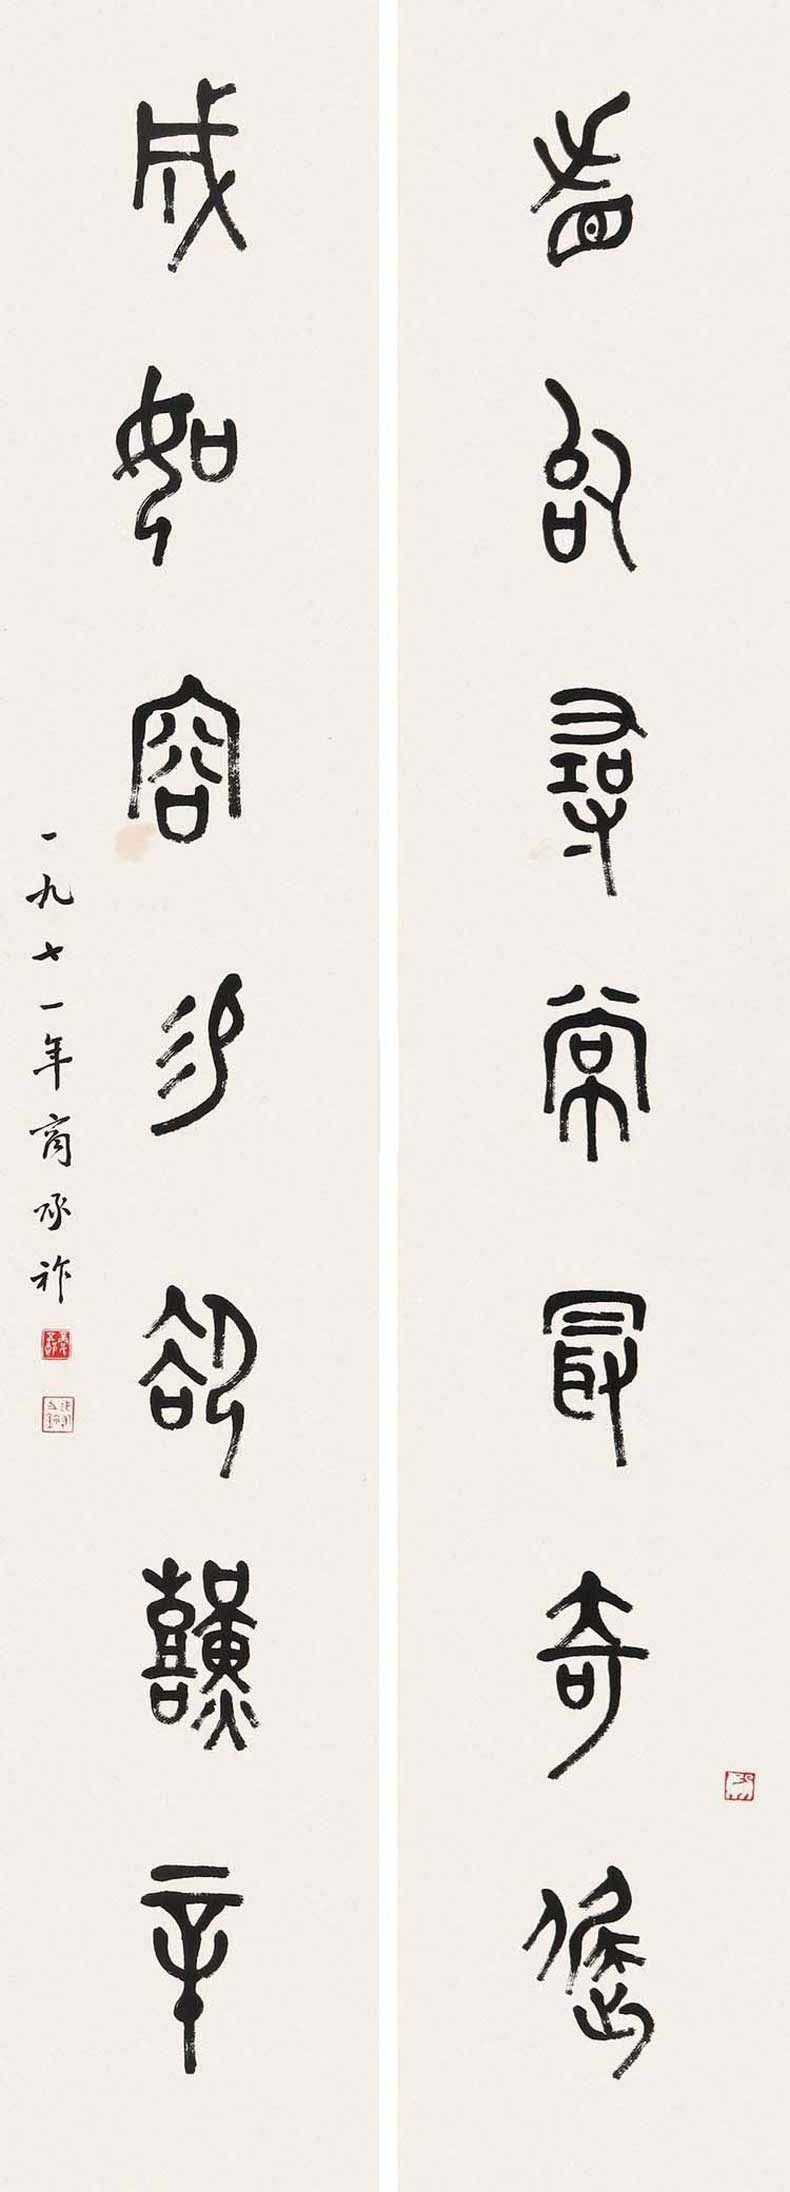 看似寻常最奇崛
成如容易却艱辛
一九七一年商承祚